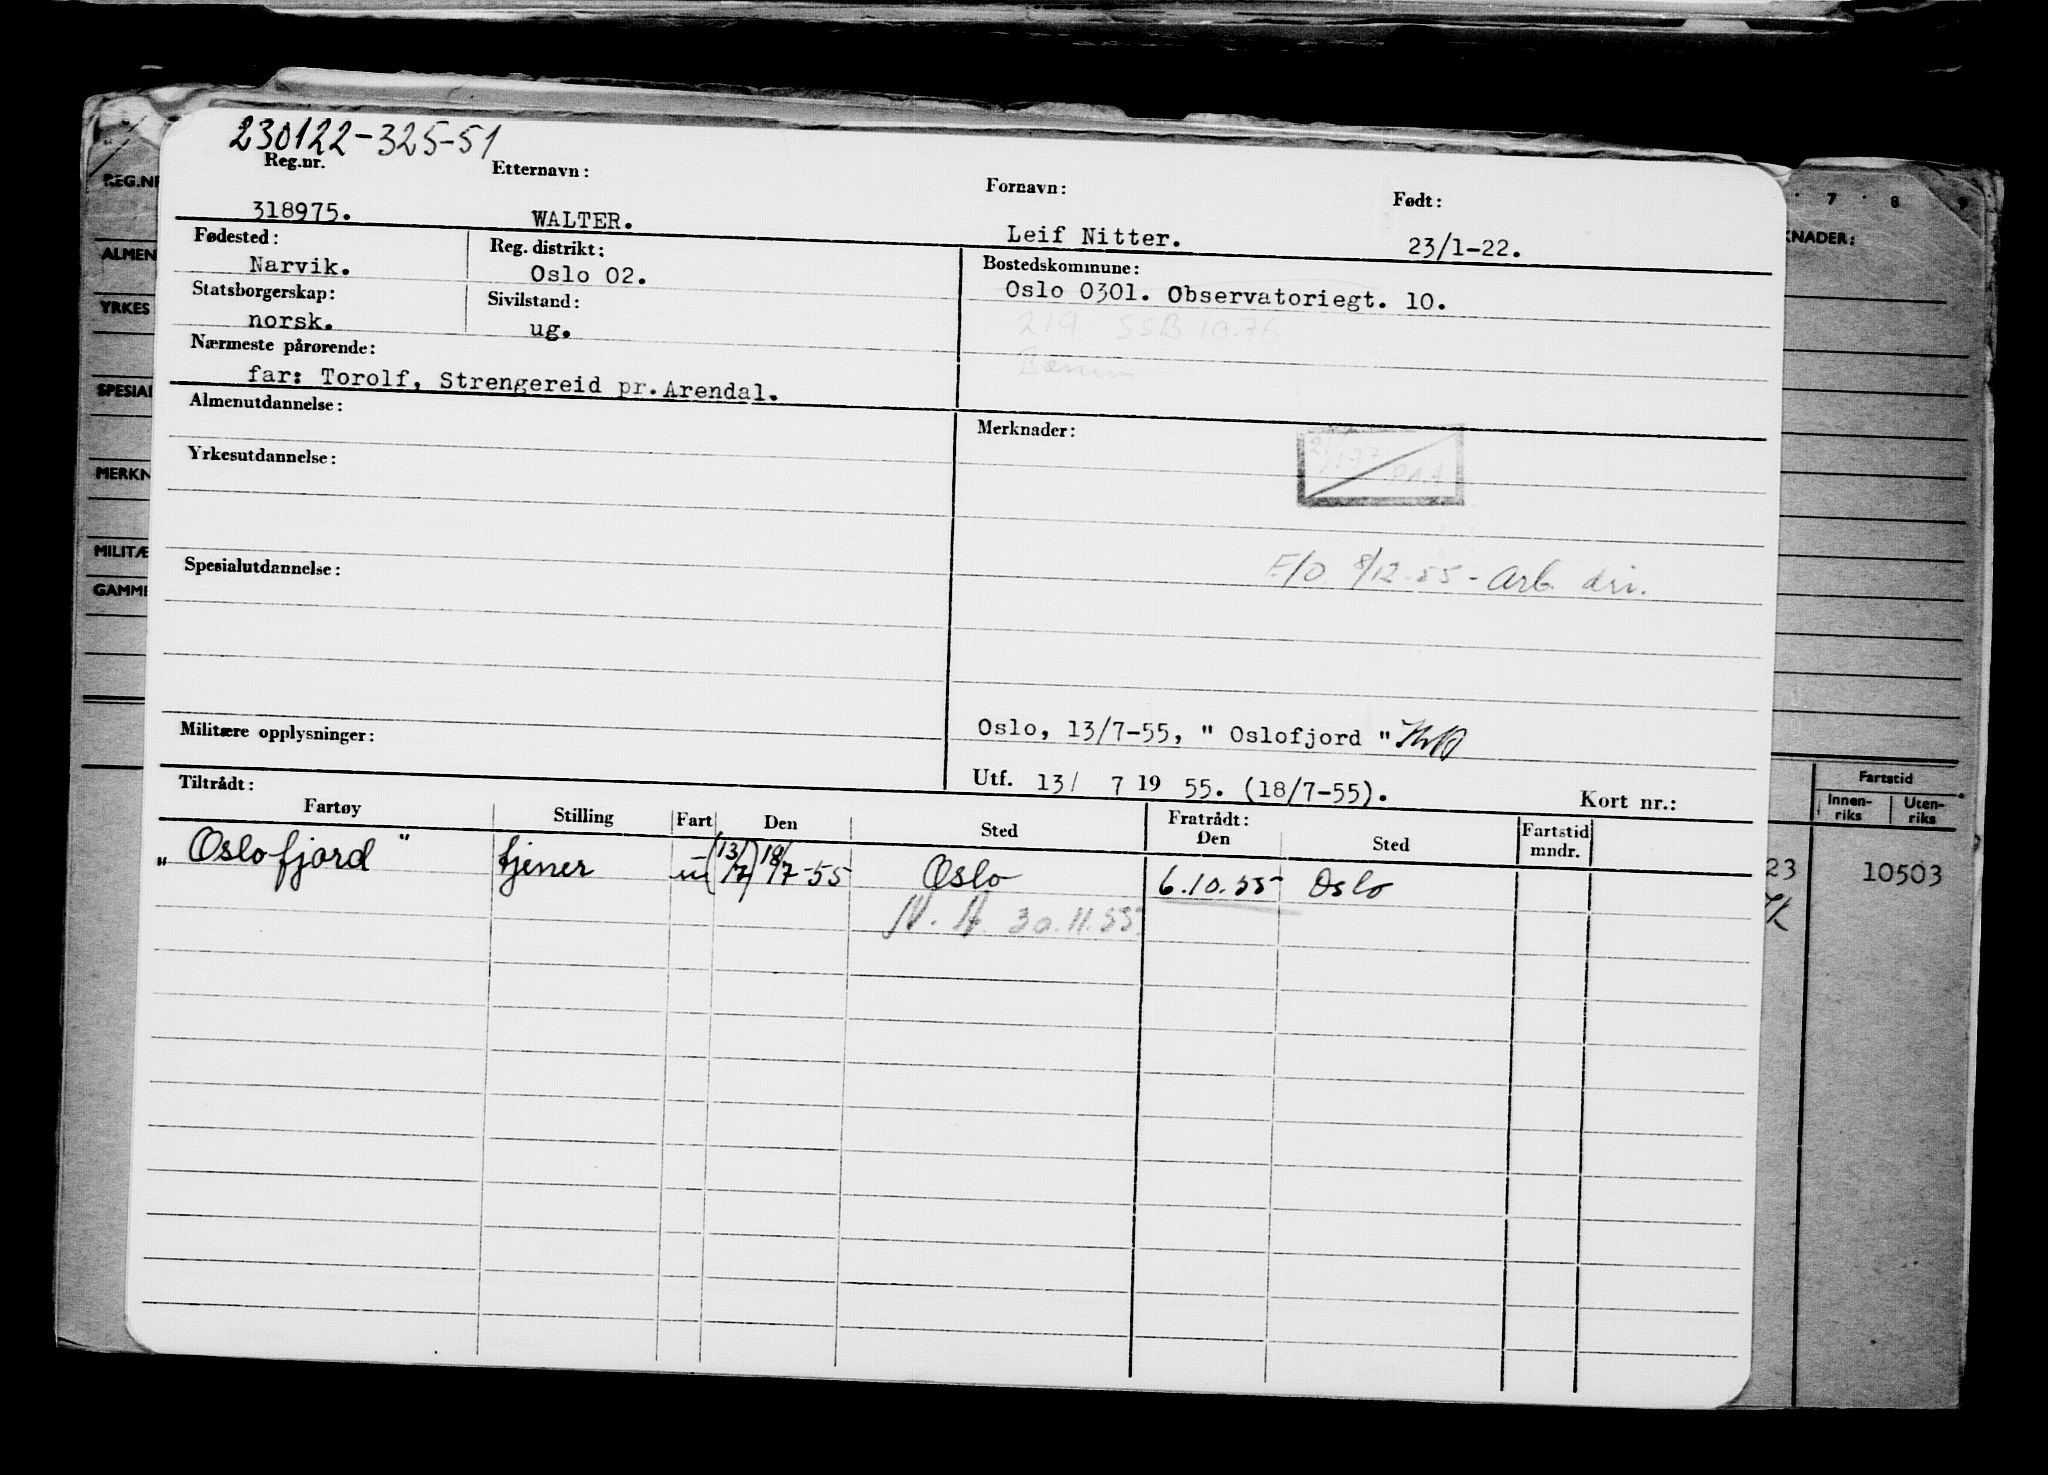 230122-325-51
Reg.nr. Etternavn: Fornavn: Født:
318975. WALTER. Leif Nitter. 23/1-22.
Fødested: Reg. distrikt: Bostedskommune:
Narvik. Oslo 02. Oslo 0301. Observatoriegt. 10.
Statsborgerskap: Sivilstand:
norsk. ug.
219 SSB 10.76
Nærmeste pårørende:
far: Torolf, Strengereid pr. Arendal.
Almenutdannelse: Merknader:
Yrkesutdannelse:
Spesialutdannelse:
F/O 8/12-55 - Arb. dri.
Militære opplysninger:
Oslo, 13/7-55, " Oslofjord "
Utf. 13/ 7 19 55. (18/7-55). Kort nr.:
Tiltrådt: Fratrådt:
Fartøy Stilling Fart Den Sted Den Sted Fartstid mndr.
„ Oslofjord " tjener u (13/7) 18/7-55 Oslo 6.10.55 Oslo
N. A. 30.11.55.
REG.NR
ALMEN
YRKES
SPESIAL
MERKN
MILITÆ
GAMME
7 8 9
KNADER:
Fartstid
Innen-riks Uten-riks
23 10503